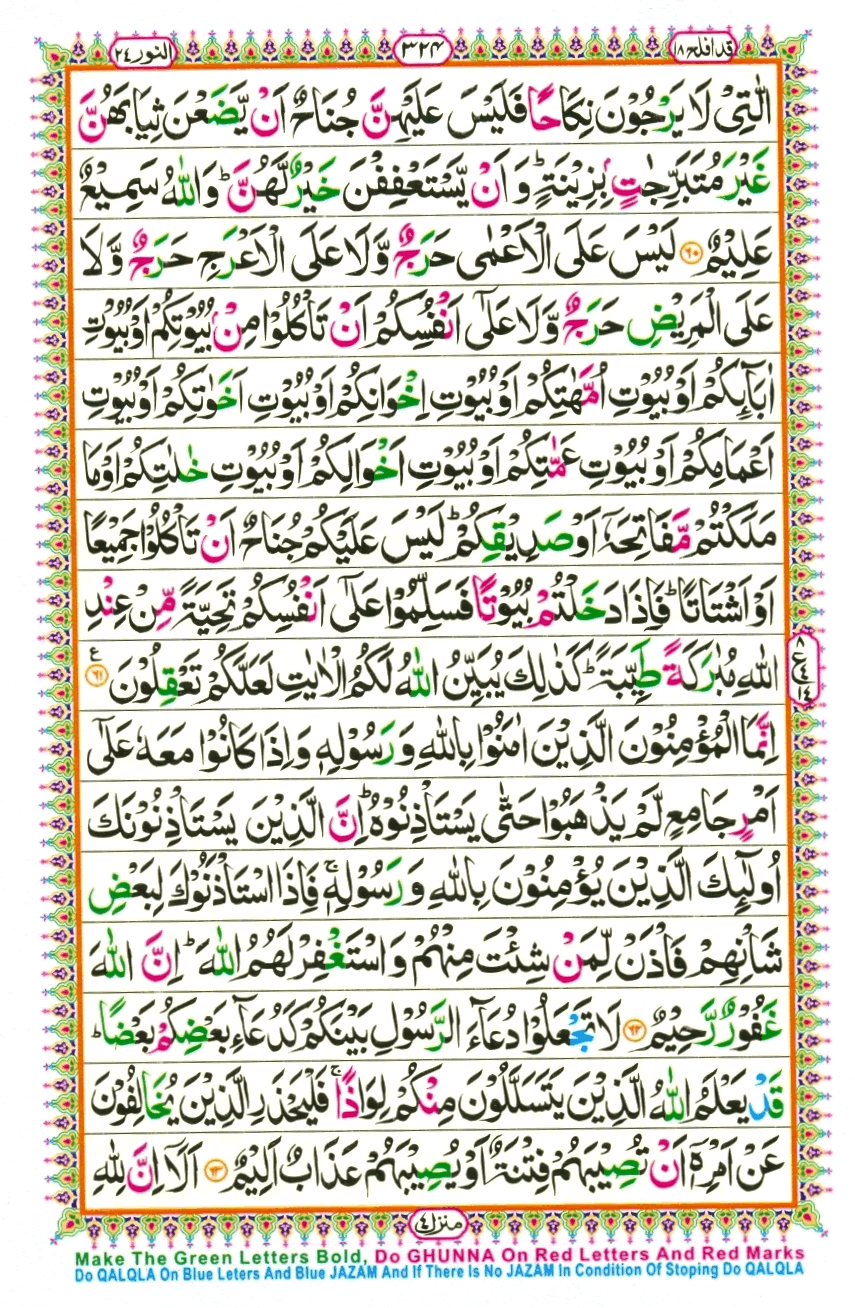 قد افلح ١٨
٣٢٤
النور ٢٤
الّٰتِیْ لَا یَرْجُوْنَ نِكَاحًا فَلَیْسَ عَلَیْهِنَّ جُنَاحٌ اَنْ یَّضَعْنَ ثِیَابَهُنَّ
غَیْرَ مُتَبَرِّجٰتٍۭ بِزِیْنَةٍؕ وَ اَنْ یَّسْتَعْفِفْنَ خَیْرٌ لَّهُنَّؕ وَ اللّٰهُ سَمِیْعٌ
عَلِیْمٌ ﴿٦٠﴾ لَیْسَ عَلَی الْاَعْمٰی حَرَجٌ وَّ لَا عَلَی الْاَعْرَجِ حَرَجٌ وَّ لَا
عَلَی الْمَرِیْضِ حَرَجٌ وَّ لَا عَلٰۤی اَنْفُسِكُمْ اَنْ تَاْكُلُوْا مِنْۢ بُیُوْتِكُمْ اَوْ بُیُوْتِ
اٰبَآىِٕكُمْ اَوْ بُیُوْتِ اُمَّهٰتِكُمْ اَوْ بُیُوْتِ اِخْوَانِكُمْ اَوْ بُیُوْتِ اَخَوٰتِكُمْ اَوْ بُیُوْتِ
اَعْمَامِكُمْ اَوْ بُیُوْتِ عَمّٰتِكُمْ اَوْ بُیُوْتِ اَخْوَالِكُمْ اَوْ بُیُوْتِ خٰلٰتِكُمْ اَوْ مَا
مَلَكْتُمْ مَّفَاتِحَهٗۤ اَوْ صَدِیْقِكُمْؕ لَیْسَ عَلَیْكُمْ جُنَاحٌ اَنْ تَاْكُلُوْا جَمِیْعًا
اَوْ اَشْتَاتًاؕ فَاِذَا دَخَلْتُمْ بُیُوْتًا فَسَلِّمُوْا عَلٰۤی اَنْفُسِكُمْ تَحِیَّةً مِّنْ عِنْدِ
اللّٰهِ مُبٰرَكَةً طَیِّبَةًؕ كَذٰلِكَ یُبَیِّنُ اللّٰهُ لَكُمُ الْاٰیٰتِ لَعَلَّكُمْ تَعْقِلُوْنَ ﴿٦١﴾ ع
٨
ع
١٤
اِنَّمَا الْمُؤْمِنُوْنَ الَّذِیْنَ اٰمَنُوْا بِاللّٰهِ وَ رَسُوْلِهٖ وَ اِذَا كَانُوْا مَعَهٗ عَلٰۤی
اَمْرٍ جَامِعٍ لَّمْ یَذْهَبُوْا حَتّٰی یَسْتَاْذِنُوْهُؕ اِنَّ الَّذِیْنَ یَسْتَاْذِنُوْنَكَ
اُولٰٓىِٕكَ الَّذِیْنَ یُؤْمِنُوْنَ بِاللّٰهِ وَ رَسُوْلِهٖۚ فَاِذَا اسْتَاْذَنُوْكَ لِبَعْضِ
شَاْنِهِمْ فَاْذَنْ لِّمَنْ شِئْتَ مِنْهُمْ وَ اسْتَغْفِرْ لَهُمُ اللّٰهَؕ اِنَّ اللّٰهَ
غَفُوْرٌ رَّحِیْمٌ ﴿٦٢﴾ لَا تَجْعَلُوْا دُعَآءَ الرَّسُوْلِ بَیْنَكُمْ كَدُعَآءِ بَعْضِكُمْ بَعْضًاؕ
قَدْ یَعْلَمُ اللّٰهُ الَّذِیْنَ یَتَسَلَّلُوْنَ مِنْكُمْ لِوَاذًاۚ فَلْیَحْذَرِ الَّذِیْنَ یُخَالِفُوْنَ
عَنْ اَمْرِهٖۤ اَنْ تُصِیْبَهُمْ فِتْنَةٌ اَوْ یُصِیْبَهُمْ عَذَابٌ اَلِیْمٌ ﴿٦٣﴾ اَلَاۤ اِنَّ لِلّٰهِ
منزل ٤
Make The Green Letters Bold, Do GHUNNA On Red Letters And Red Marks
Do QALQLA On Blue Leters And Blue JAZAM And If There Is No JAZAM In Condition Of Stoping Do QALQLA